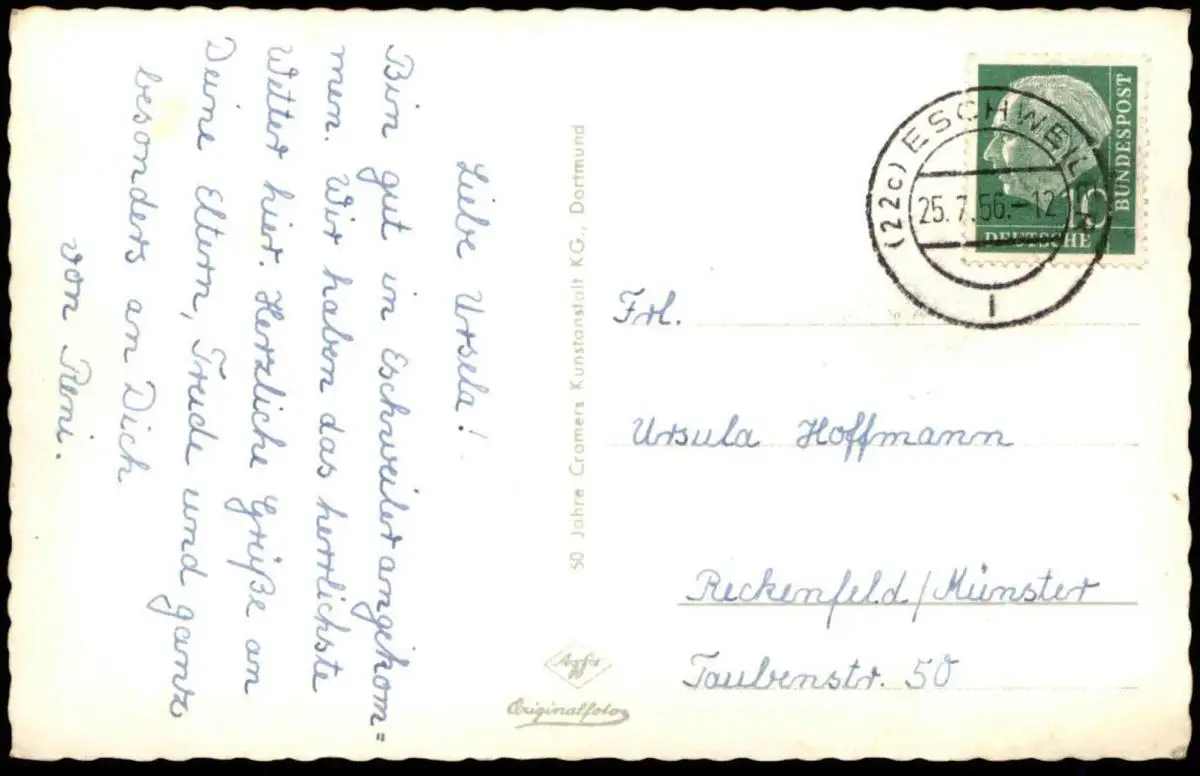 Liebe Ursela!
Bin gut in Eschweiler angekom=
men. Wir haben das herrlichste
Wetter hier. Herzliche Grüße an
Deine Eltern, Trude und ganz
besonders an Dich
von Reni.
50 Jahre Cramers Kunstanstalt KG., Dortmund
Agfa
Originalfoto
(22c) ESCHWEIL
25.7.56.-12
1
BUNDESPOST
DEUTSCHE
Frl.
Ursula Hoffmann
Reckenfeld/Münster
Taubenstr. 50